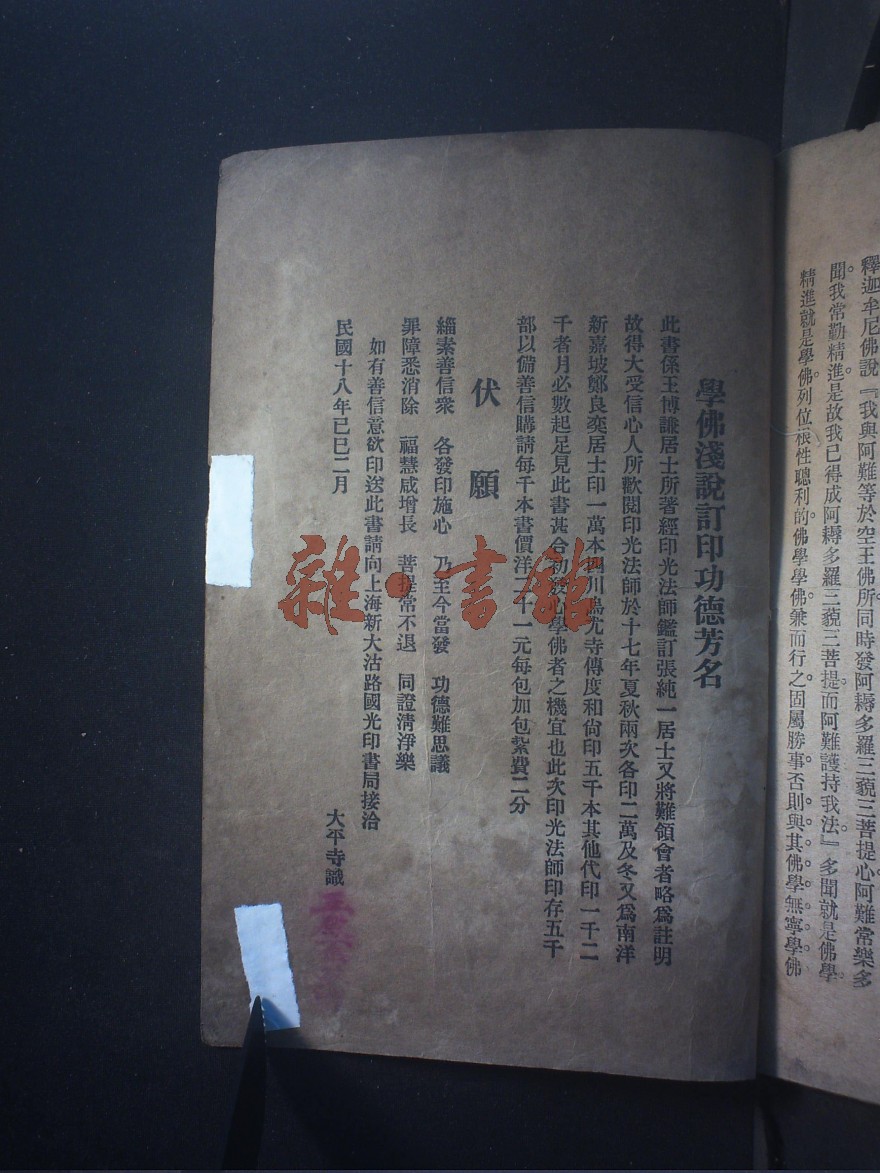 釋迦牟尼佛說『我與阿難等於空王佛所同時發阿耨多羅三藐三菩提心阿難常樂多
聞。我常勤精進是故我已得成阿耨多羅三藐三菩提而阿難護持我法。』多聞就是佛學。
精進就是學佛。列位根性聰利的佛學學佛兼而行之固屬勝事否則與其佛學無寧學佛
學佛淺說訂印功德芳名
此書係王博謙居士所著經印光法師鑑訂張純一居士又將難領會者略爲註明
故得大受信心人所歡閱印光法師於十七年夏秋兩次各印二萬及冬又爲南洋
新嘉坡鄭良奕居士印一萬本四川烏尤寺傳度和尙印五千本其他代印一千二
千者月必數起足見此書甚合初發心學佛者之機宜也此次印光法師印存五千
部以備善信購請每千本書價洋二十一元每包加包紮費二分
伏願
緇素善信衆 各發印施心 乃至今當發 功德難思議
罪障悉消除 福慧咸增長 菩提常不退 同證淸淨樂
如有善信意欲印送此書請向上海新大沽路國光印書局接洽
民國十八年已巳二月
大平寺識
雜·書館